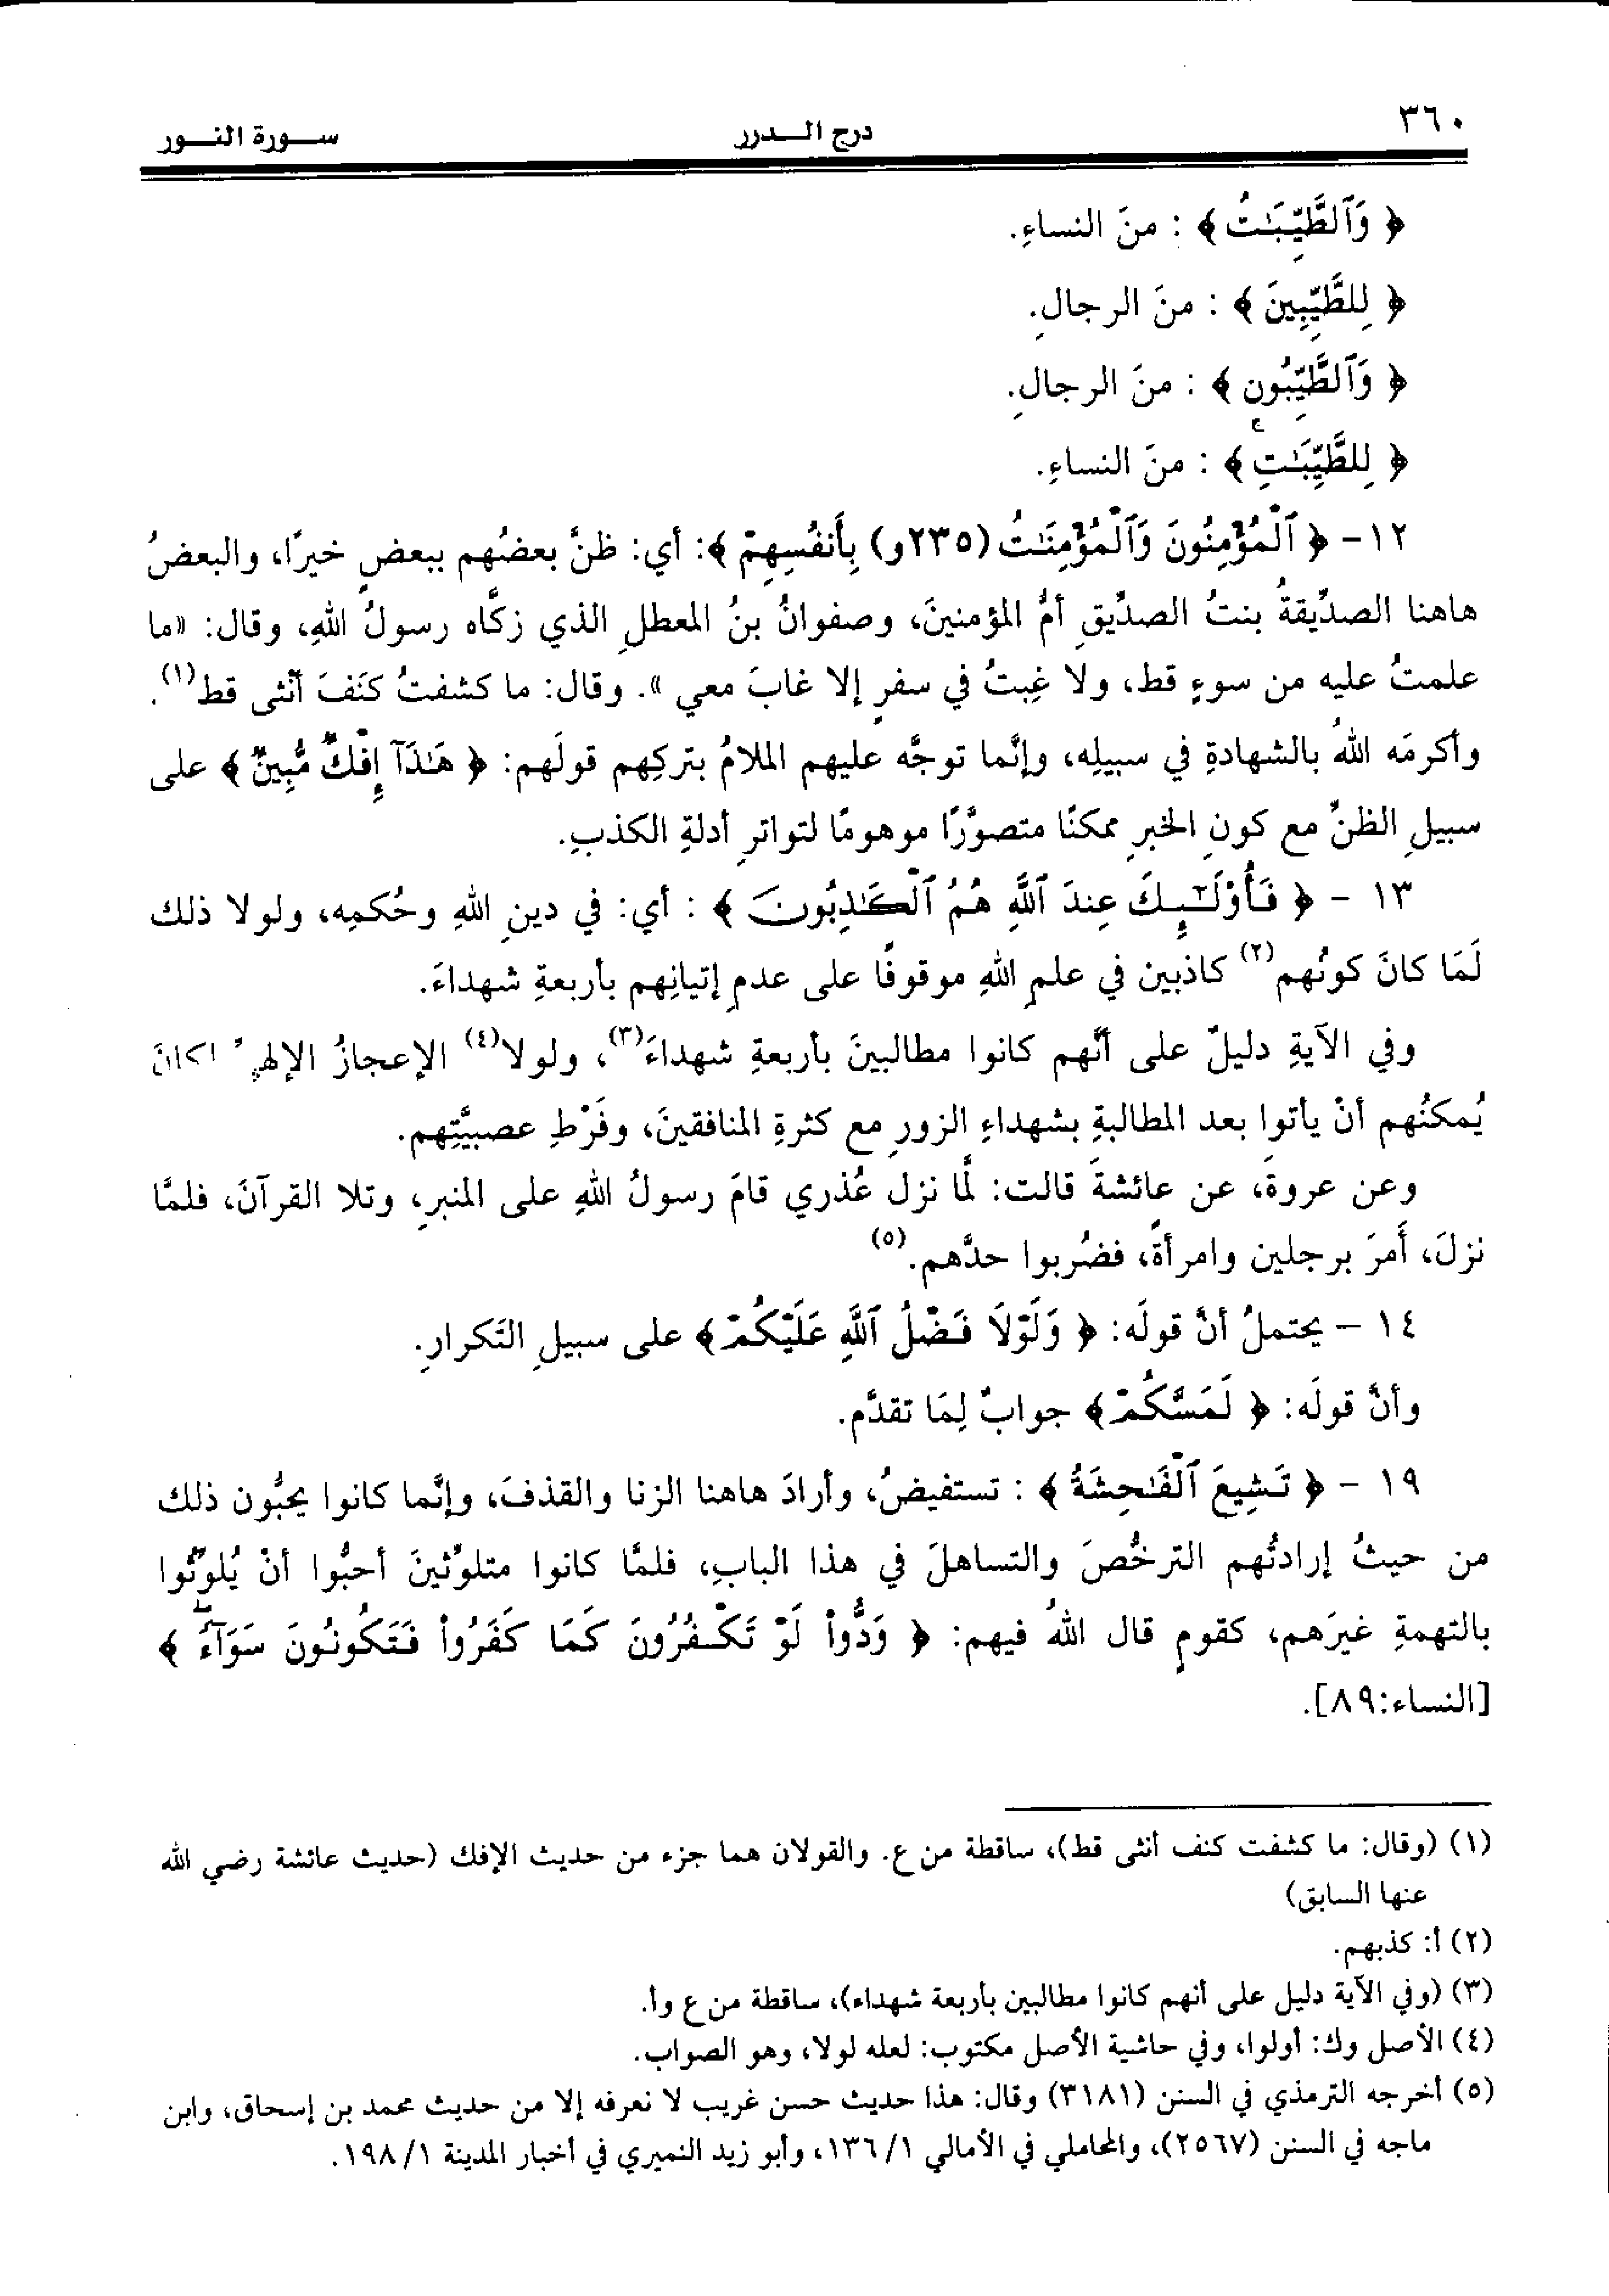 ٣٦٠ درج الـــدرر ســـورة النـــور
﴿ وَٱلطَّيِّبَـٰتُ ﴾ : منَ النساءِ.
﴿ لِلطَّيِّبِينَ ﴾ : منَ الرجالِ.
﴿ وَٱلطَّيِّبُونَ ﴾ : منَ الرجالِ.
﴿ لِلطَّيِّبَـٰتِ ۚ ﴾ : منَ النساءِ.
١٢- ﴿ ٱلْمُؤْمِنُونَ وَٱلْمُؤْمِنَـٰتُ (٢٣٥و) بِأَنفُسِهِمْ ﴾: أي: ظنَّ بعضُهم ببعضٍ خيرًا، والبعضُ
هاهنا الصدِّيقةُ بنتُ الصدِّيقِ أمُّ المؤمنينَ، وصفوانُ بنُ المعطلِ الذي زكَّاه رسولُ اللهِ، وقال: «ما
علمتُ عليه من سوءٍ قط، ولا غِبتُ في سفرٍ إلا غابَ معي ». وقال: ما كشفتُ كنَفَ أنْثى قط(١).
وأكرمَه اللهُ بالشهادةِ في سبيلِه، وإنَّما توجَّه عليهم الملامُ بتركِهم قولَهم: ﴿ هَـٰذَآ إِفْكٌ مُّبِينٌ ﴾ على
سبيلِ الظنِّ مع كونِ الخبرِ ممكنًا متصوَّرًا موهومًا لتواترِ أدلةِ الكذبِ.
١٣ - ﴿ فَأُوْلَـٰٓئِكَ عِندَ ٱللَّهِ هُمُ ٱلْكَـٰذِبُونَ ﴾ : أي: في دينِ اللهِ وحُكمِه، ولولا ذلك
لَمَا كانَ كونُهم(٢) كاذبين في علمِ اللهِ موقوفًا على عدمِ إتيانِهم بأربعةِ شهداءَ.
وفي الآيةِ دليلٌ على أنَّهم كانوا مطالبينَ بأربعةِ شهداءَ(٣)، ولولا(٤) الإعجازُ
يُمكنُهم أنْ يأتوا بعد المطالبةِ بشهداءِ الزورِ مع كثرةِ المنافقينَ، وفَرْطِ عصبيَّتِهم.
وعن عروةَ، عن عائشةَ قالت: لمَّا نزل عُذري قامَ رسولُ اللهِ على المنبرِ، وتلا القرآنَ، فلمَّا
نزلَ، أَمرَ برجلين وامرأةً، فضُربوا حدَّهم.(٥)
١٤ - يحتملُ أنَّ قولَه: ﴿ وَلَوْلَا فَضْلُ ٱللَّهِ عَلَيْكُمْ ﴾ على سبيلِ التَكرارِ.
وأنَّ قولَه: ﴿ لَمَسَّكُمْ ﴾ جوابٌ لِمَا تقدَّم.
١٩ - ﴿ تَشِيعَ ٱلْفَـٰحِشَةُ ﴾ : تستفيضُ، وأرادَ هاهنا الزنا والقذفَ، وإنَّما كانوا يحبُّون ذلك
من حيثُ إرادتُهم الترخُّصَ والتساهلَ في هذا البابِ، فلمَّا كانوا متلوِّثينَ أحبُّوا أنْ يُلوِّثُوا
بالتهمةِ غيرَهم، كقومٍ قال اللهُ فيهم: ﴿ وَدُّواْ لَوْ تَكْفُرُونَ كَمَا كَفَرُواْ فَتَكُونُونَ سَوَآءً ۖ ﴾
[النساء:٨٩].
(١) (وقال: ما كشفت كنف أنثى قط)، ساقطة من ع. والقولان هما جزء من حديث الإفك (حديث عائشة رضي الله
عنها السابق)
(٢) أ: كذبهم.
(٣) (وفي الآية دليل على أنهم كانوا مطالبين بأربعة شهداء)، ساقطة من ع وأ.
(٤) الأصل وك: أولوا، وفي حاشية الأصل مكتوب: لعله لولا، وهو الصواب.
(٥) أخرجه الترمذي في السنن (٣١٨١) وقال: هذا حديث حسن غريب لا نعرفه إلا من حديث محمد بن إسحاق، وابن
ماجه في السنن (٢٥٦٧)، والمحاملي في الأمالي ١٣٦/١، وأبو زيد النميري في أخبار المدينة ١٩٨/١.